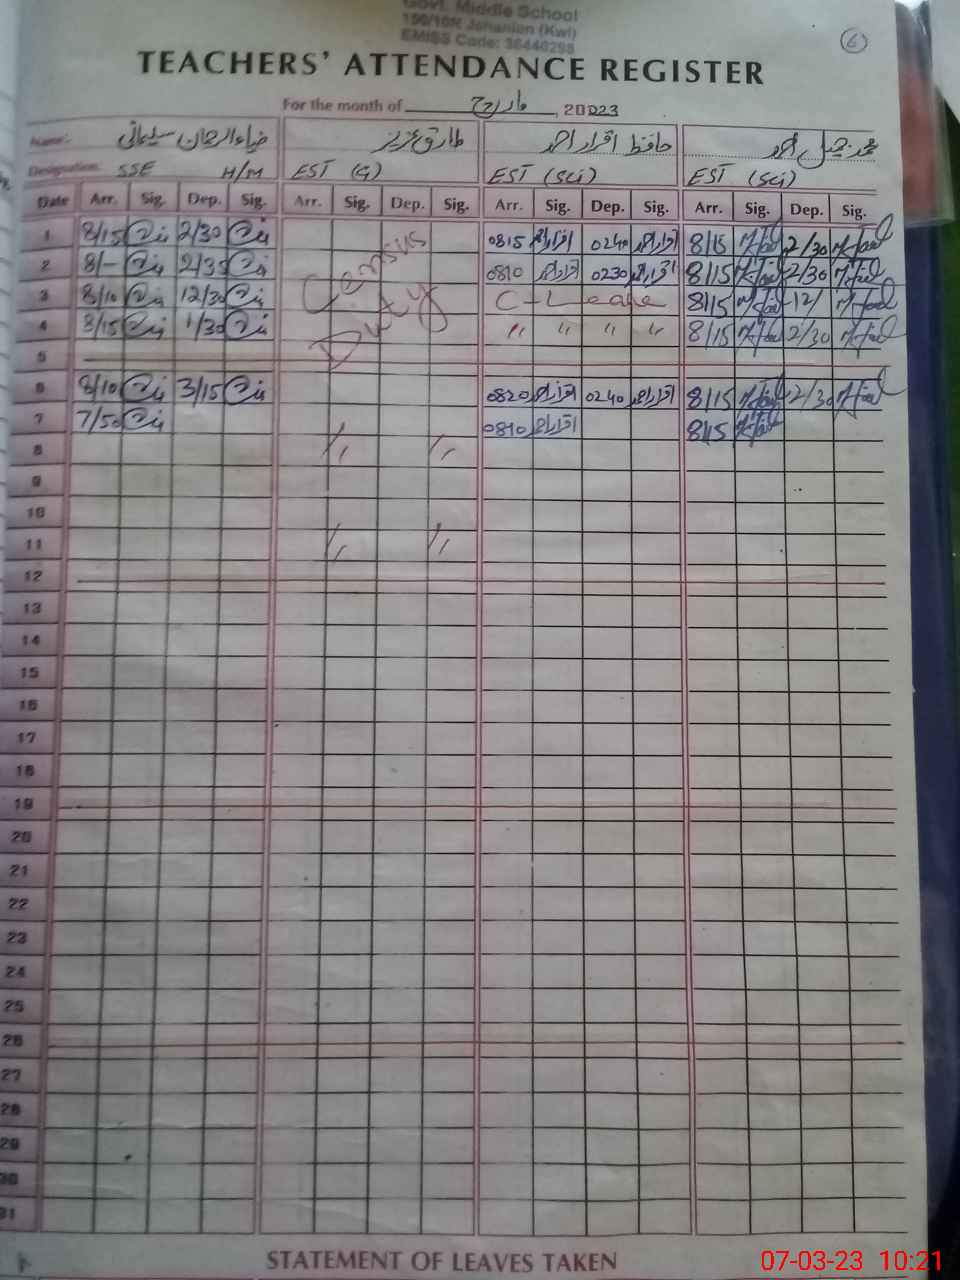 Govt. Middle School
Jahanian (Kwl)
EMISS Code: 36440298
6
TEACHERS' ATTENDANCE REGISTER
For the month of مارچ, 2023
Name:- ضیاءالرحمان سلیمانی طارق عزیز حافظ اقرار احمد محمد جمیل احمد
Designation SSE H/M EST (G) EST (Sci) EST (Sci)
Date Arr. Sig. Dep. Sig. Arr. Sig. Dep. Sig. Arr. Sig. Dep. Sig. Arr. Sig. Dep. Sig.
1 8/15 2/30 0815 اقرار احمد 0240 اقرار احمد 8/15 2/30
2 8/- 2/30 0810 اقرار احمد 0230 اقرار احمد 8/15 2/30
3 8/10 12/30 C-Leave 8/15 12/
4 8/15 1/30 " " " " 8/15 2/30
Census Duty
5
6 8/10 3/15 0820 اقرار احمد 0240 اقرار احمد 8/15 2/30
7 7/50 0810 اقرار احمد 8/15
8 " "
9
10
11 " "
12
13
14
15
16
17
18
19
20
21
22
23
24
25
26
27
28
29
30
31
STATEMENT OF LEAVES TAKEN
07-03-23 10:21